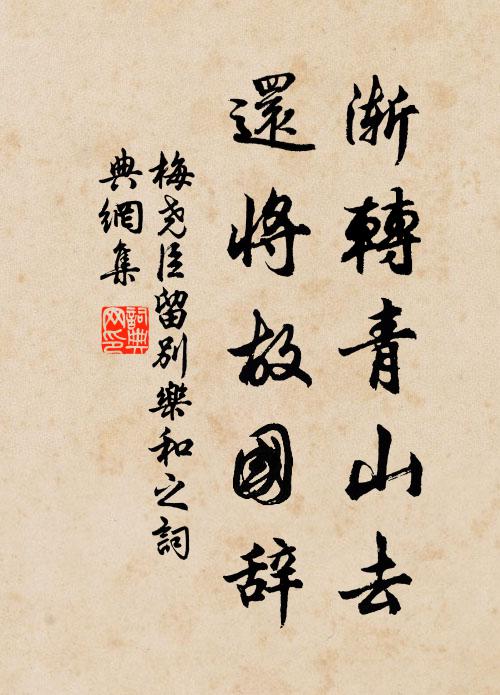 漸轉青山去
還將故國辞
梅尧臣留別樂和之詞
典網集
詞典
网印